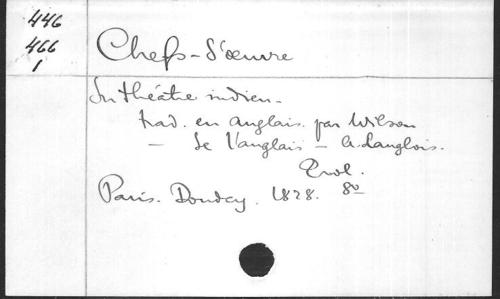 446
466
1
Chefs-d'œuvre
du théâtre indien -
trad. en anglais par Wilson
— de l'anglais — A. Langlois.
2 vol.
Paris. Dondey. 1828. 8o